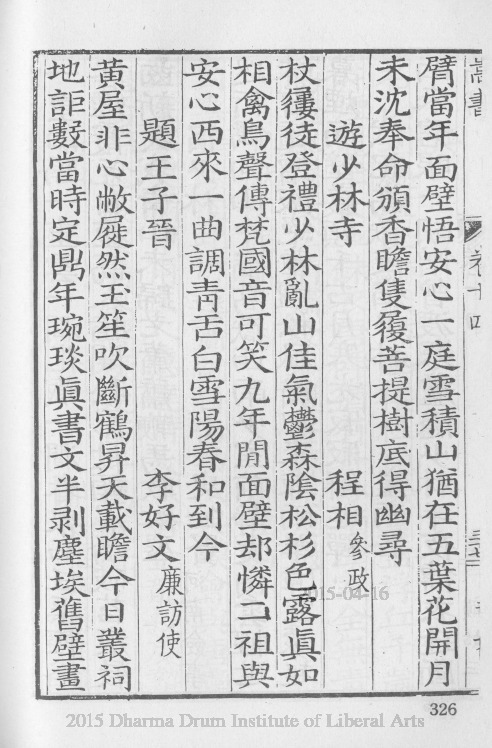 嵩書 卷十四
臂當年面壁悟安心一庭雪積山猶在五葉花開月
未沈奉命頒香瞻隻履菩提樹底得幽尋
遊少林寺 程相參政
杖屨徒登禮少林亂山佳氣鬱森陰松杉色露眞如
相禽鳥聲傳梵國音可笑九年閒面壁却憐二祖與
安心西來一曲調靑古白雪陽春和到今
題王子晉 李好文廉訪使
黃屋非心敝屣然玉笙吹斷鶴昇天載瞻今日叢祠
地詎數當時定鼎年琬琰眞書文半剥塵埃舊壁畫
326
2015-04-16
2015 Dharma Drum Institute of Liberal Arts